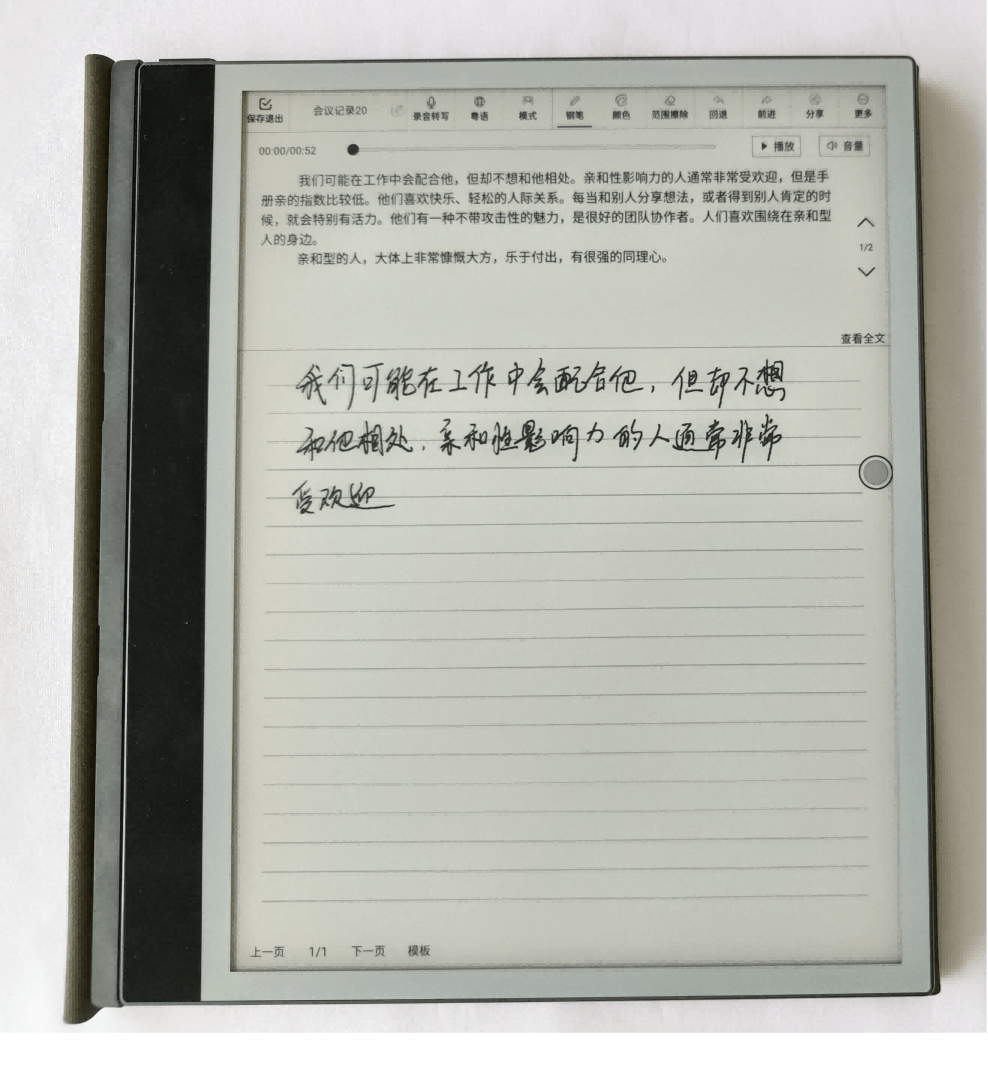 保存退出 会议记录20 录音转写 粤语 模式 钢笔 颜色 范围擦除 回退 前进 分享 更多
00:00/00:52 播放 音量
我们可能在工作中会配合他，但却不想和他相处。亲和性影响力的人通常非常受欢迎，但是手
册亲的指数比较低。他们喜欢快乐、轻松的人际关系。每当和别人分享想法，或者得到别人肯定的时
候，就会特别有活力。他们有一种不带攻击性的魅力，是很好的团队协作者。人们喜欢围绕在亲和型
人的身边。
亲和型的人，大体上非常慷慨大方，乐于付出，有很强的同理心。
1/2
查看全文
我们可能在工作中会配合他，但却不想
和他相处．亲和性影响力的人通常非常
受欢迎
上一页 1/1 下一页 模板